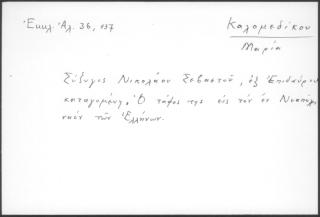 Ἐκκλ. Ἀλ. 36, 137
Καλομεδίκου
Μαρία
Σύζυγος Νικολάου Σεβαστοῦ, ἐξ Ἐπιδαύρου
καταγομένη. Ὁ τάφος της εἰς τὸν ἐν
τῶν Ἑλλήνων.